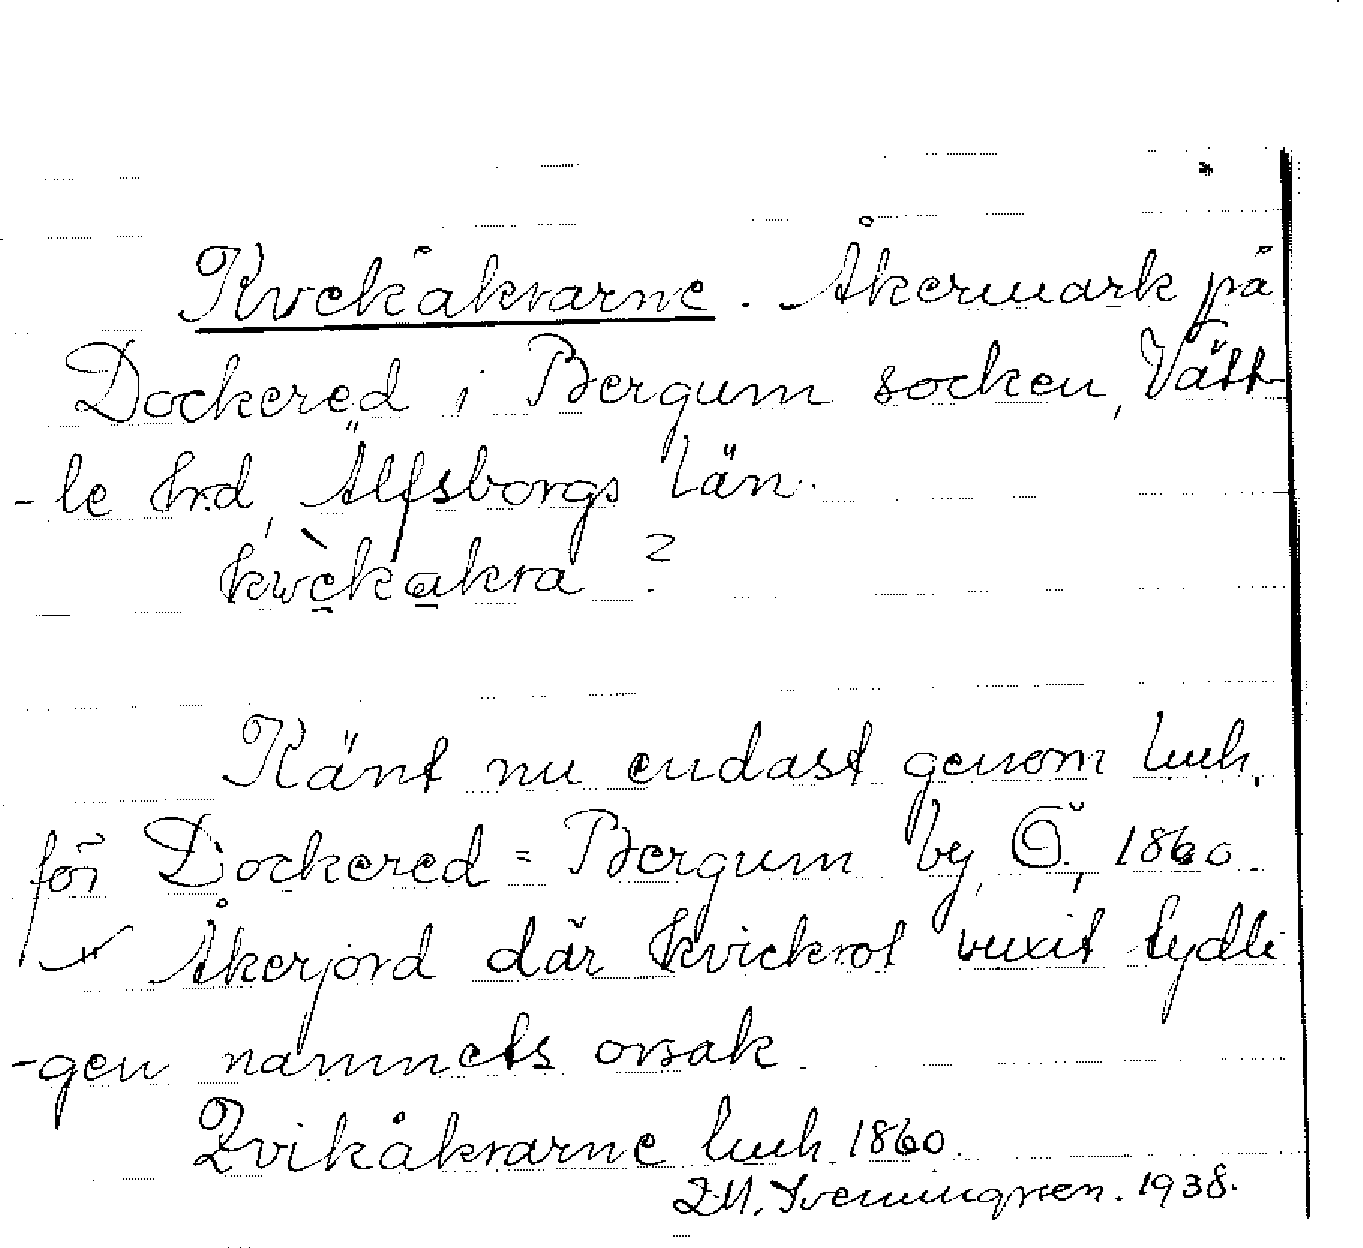 Kvekåkrarne. Åkermark på
Dockered i Bergum socken, Vätt-
-le hrd, Älfsborgs län.
kwèkakra ?
Känt nu endast genom luh.
för Dockered = Bergum by, Ö, 1860.
Åkerjord där kvickrot vuxit tydli
-gen namnets orsak.
Qvikåkrarne luh 1860.
1938.